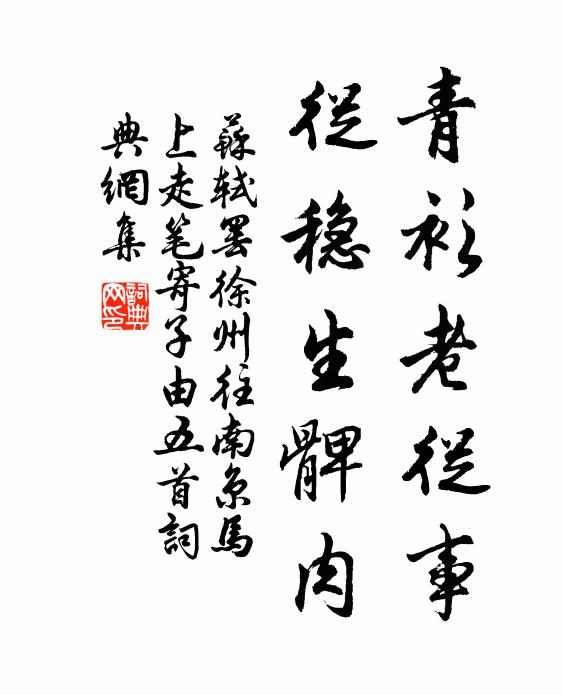 青衫老從事
從稳生髀肉
蘇軾罢徐州往南京馬
上走笔寄子由五首詞
典網集
詞典
网印